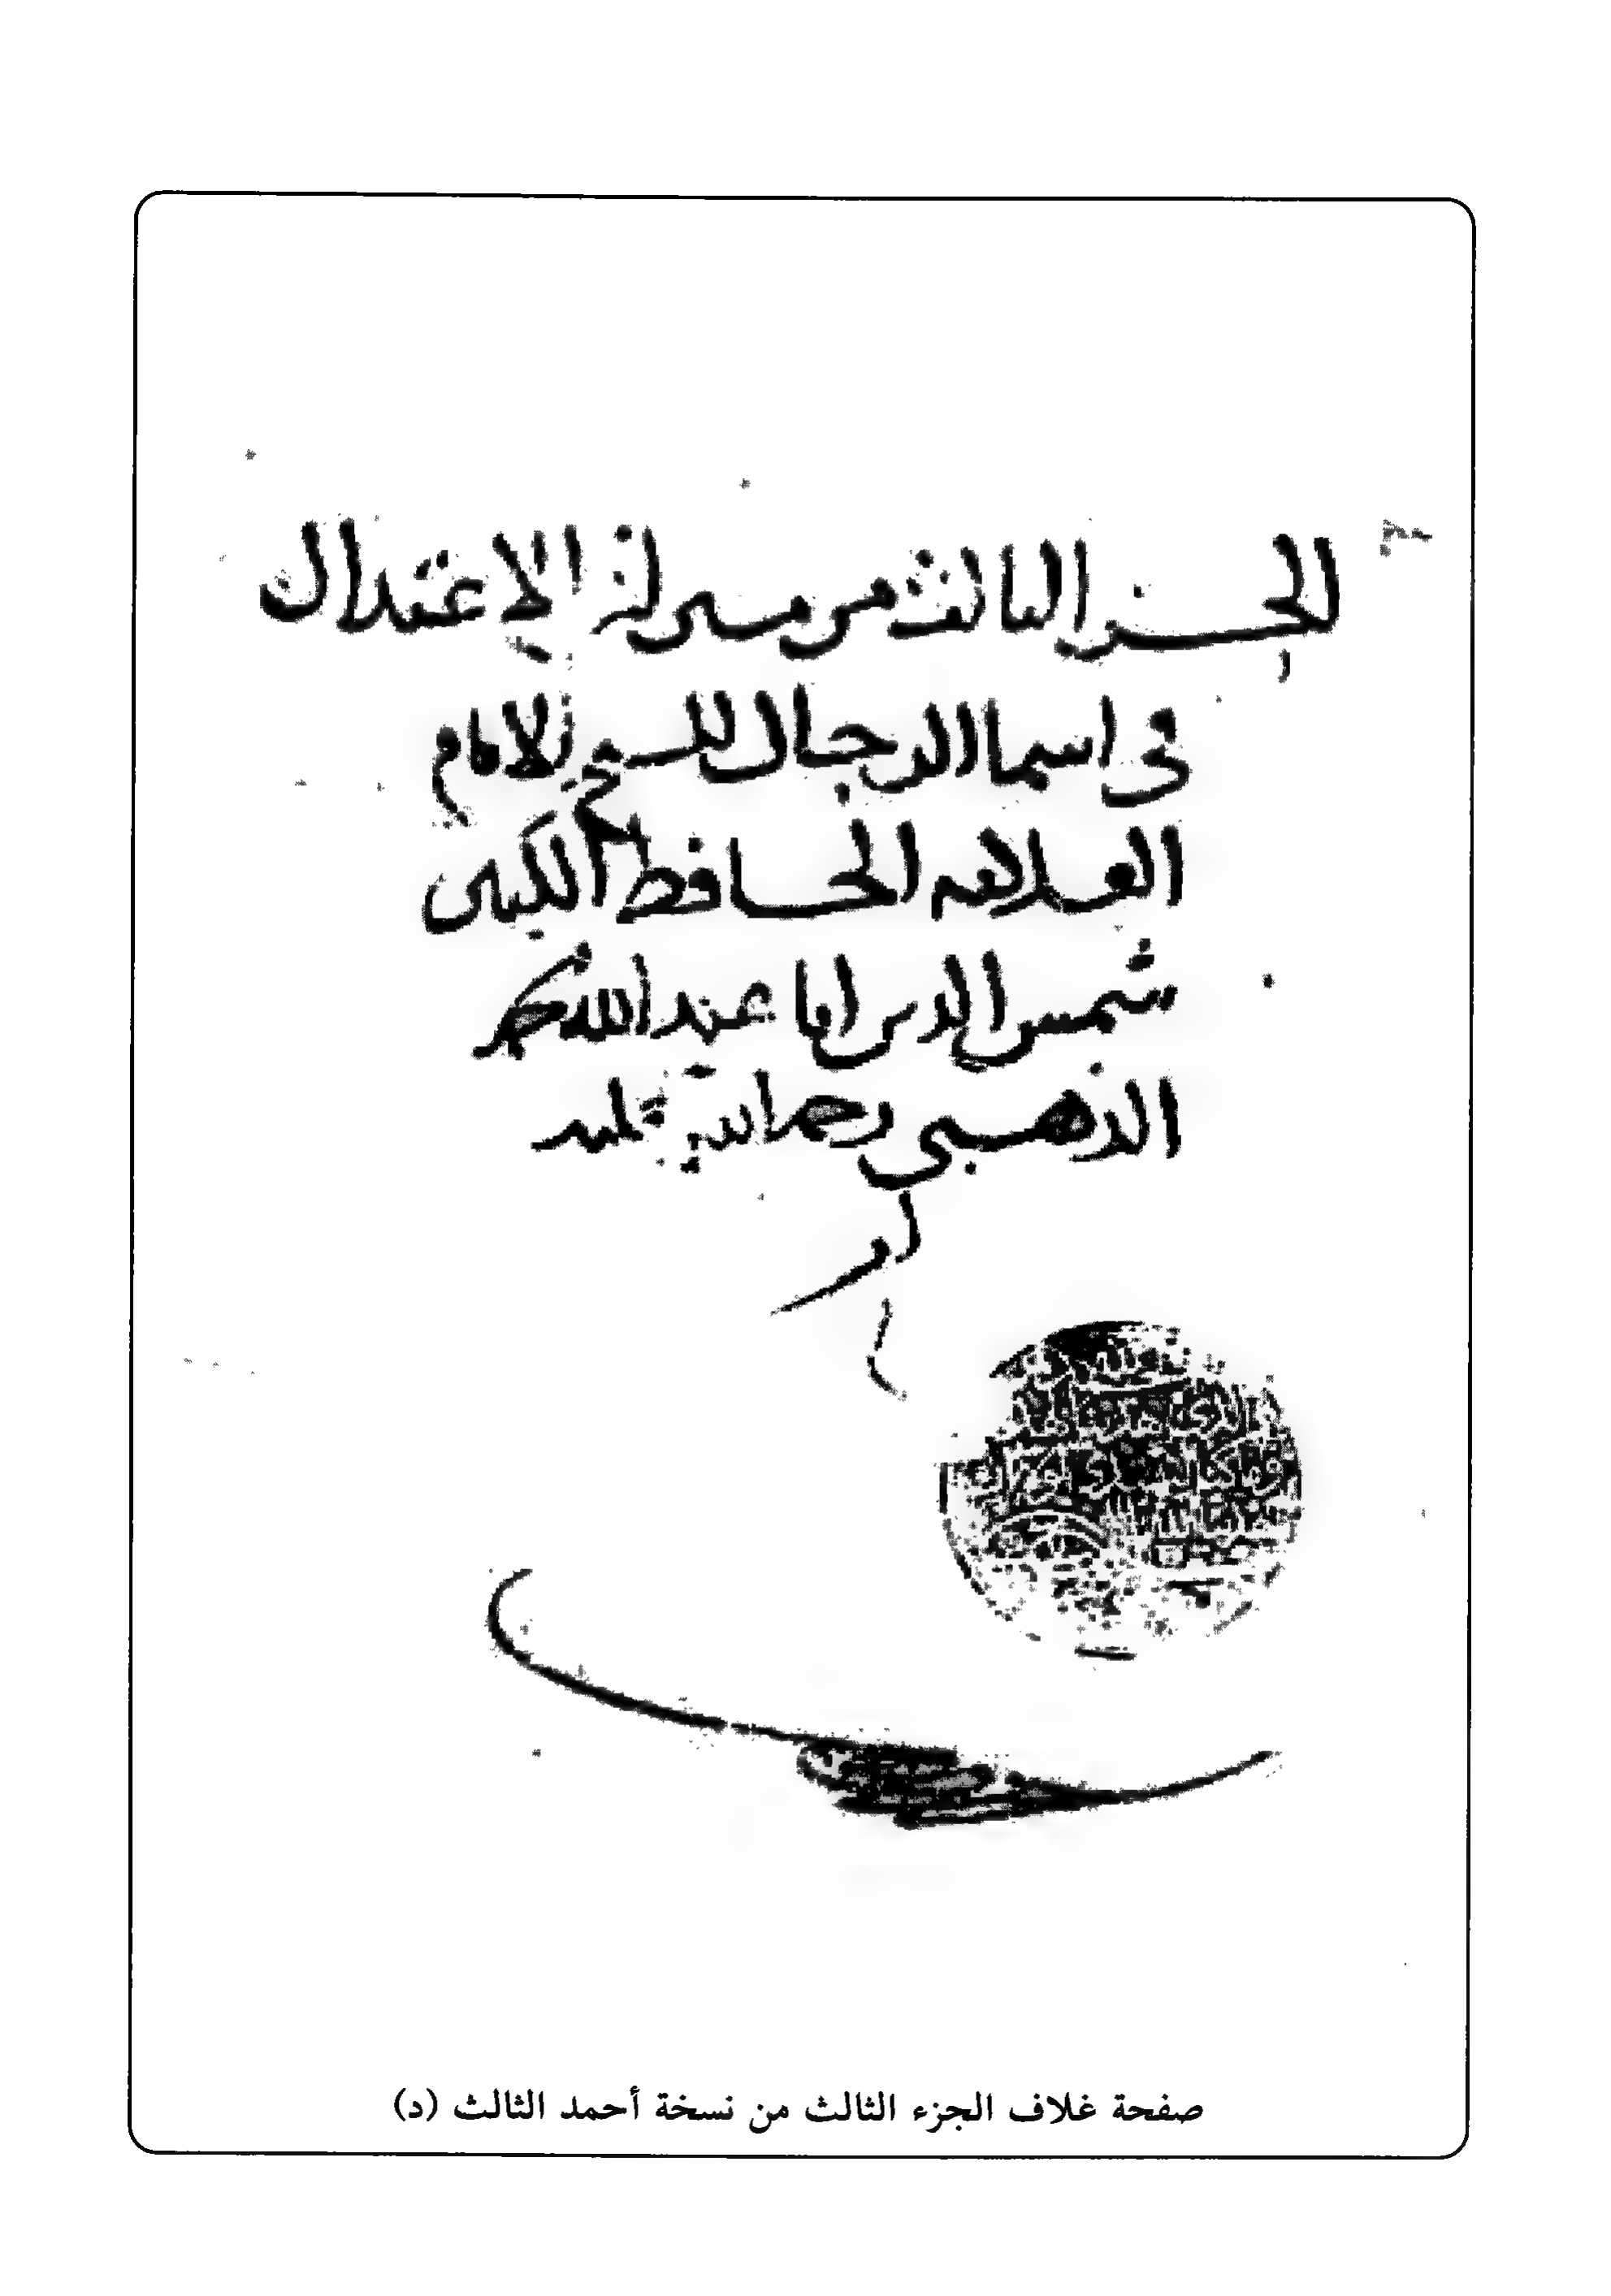 الجز الثالث من ميزان الاعتدال
في اسما الرجال للشيخ الامام
العلامه الحافظ الكبير
شمس الدين ابا عبد الله محمد
الذهبي رحمة الله عليه
صفحة غلاف الجزء الثالث من نسخة أحمد الثالث (د)